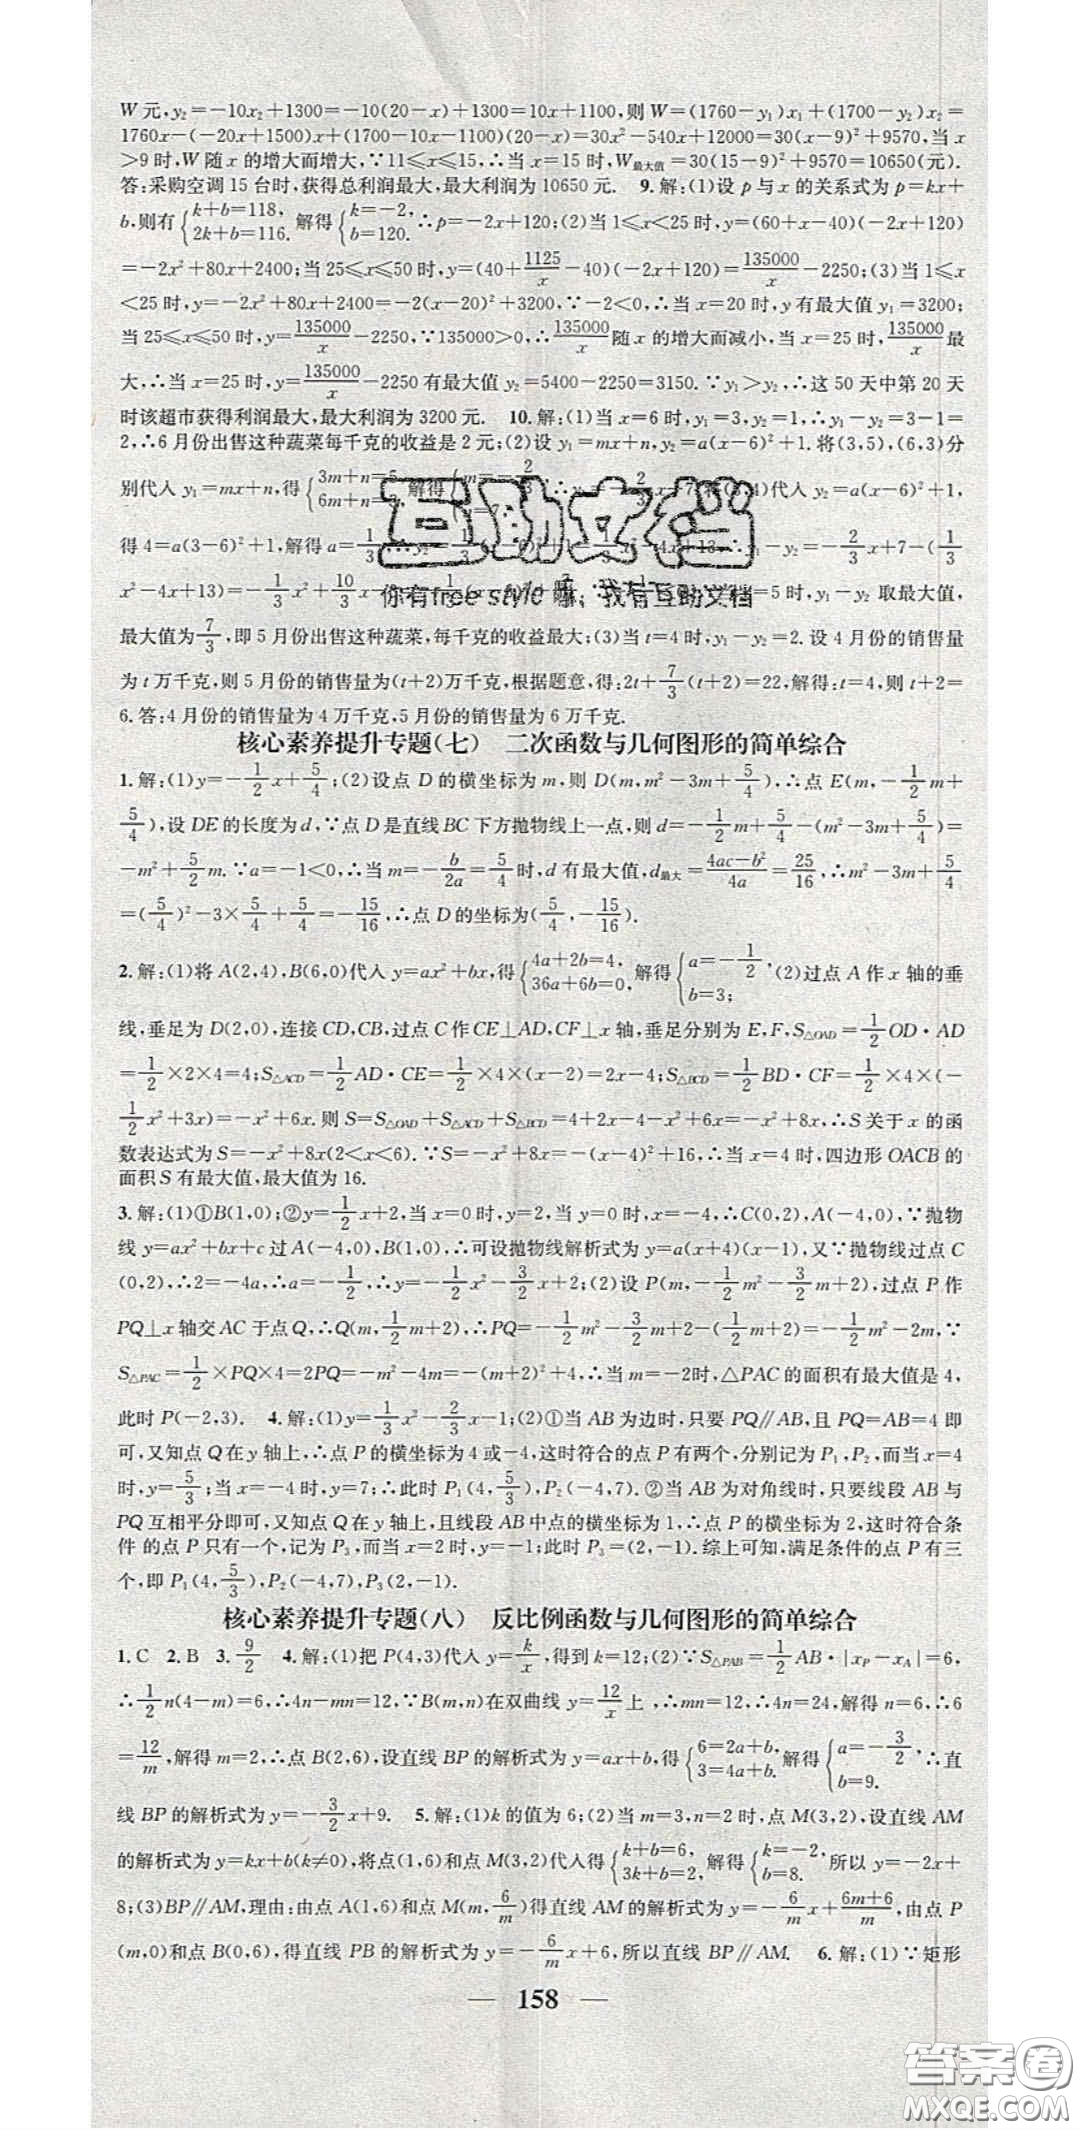 W元,y₂=-10x₂+1300=-10(20-x)+1300=10x+1100,则W=(1760-y₁)x₁+(1700-y₂)x₂=
1760x-(-20x+1500)x+(1700-10x-1100)(20-x)=30x²-540x+12000=30(x-9)²+9570,当x
>9时,W随x的增大而增大,∵11≤x≤15,∴当x=15时,W最大值=30(15-9)²+9570=10650(元).
答:采购空调15台时,获得总利润最大,最大利润为10650元. 9.解:(1)设p与x的关系式为p=kx+
b,则有{k+b=118, 2k+b=116. 解得{k=-2, b=120. ∴p=-2x+120;(2)当1≤x<25时,y=(60+x-40)(-2x+120)
=-2x²+80x+2400;当25≤x≤50时,y=(40+1125/x-40)(-2x+120)=135000/x-2250;(3)当1≤x
<25时,y=-2x²+80x+2400=-2(x-20)²+3200,∵-2<0,∴当x=20时,y有最大值y₁=3200;
当25≤x≤50时,y=135000/x-2250,∵135000>0,∴135000/x随x的增大而减小,当x=25时,135000/x最
大,∴当x=25时,y=135000/x-2250有最大值y₂=5400-2250=3150.∵y₁>y₂,∴这50天中第20天
时该超市获得利润最大,最大利润为3200元. 10.解:(1)当x=6时,y₁=3,y₂=1,∴y₁-y₂=3-1=
2,∴6月份出售这种蔬菜每千克的收益是2元;(2)设y₁=mx+n,y₂=a(x-6)²+1.将(3,5),(6,3)分
别代入y₁=mx+n,得{3m+n=5, 6m+n=3, 解得 代入y₂=a(x-6)²+1,
互助文档
得4=a(3-6)²+1,解得a=1/3 y₁-y₂=-2/3x+7-(1/3
x²-4x+13)=-1/3x²+10/3x 时,y₁-y₂取最大值,
你有free style 嘛,我有互助文档
最大值为7/3,即5月份出售这种蔬菜,每千克的收益最大;(3)当t=4时,y₁-y₂=2.设4月份的销售量
为t万千克,则5月份的销售量为(t+2)万千克,根据题意,得:2t+7/3(t+2)=22,解得:t=4,则t+2=
6.答:4月份的销售量为4万千克,5月份的销售量为6万千克.
核心素养提升专题(七) 二次函数与几何图形的简单综合
1.解:(1)y=-1/2x+5/4;(2)设点D的横坐标为m,则D(m,m²-3m+5/4),∴点E(m,-1/2m+
5/4),设DE的长度为d,∵点D是直线BC下方抛物线上一点,则d=-1/2m+5/4-(m²-3m+5/4)=
-m²+5/2m.∵a=-1<0,∴当m=-b/2a=5/4时,d有最大值,d最大=(4ac-b²)/4a=25/16,∴m²-3m+5/4
=(5/4)²-3×5/4+5/4=-15/16,∴点D的坐标为(5/4,-15/16).
2.解:(1)将A(2,4),B(6,0)代入y=ax²+bx,得{4a+2b=4, 36a+6b=0, 解得{a=-1/2, b=3; (2)过点A作x轴的垂
线,垂足为D(2,0),连接CD,CB,过点C作CE⊥AD,CF⊥x轴,垂足分别为E,F,S△OAD=1/2OD·AD
=1/2×2×4=4;S△ACD=1/2AD·CE=1/2×4×(x-2)=2x-4;S△BCD=1/2BD·CF=1/2×4×(-
1/2x²+3x)=-x²+6x.则S=S△OAD+S△ACD+S△BCD=4+2x-4-x²+6x=-x²+8x,∴S关于x的函
数表达式为S=-x²+8x(2<x<6).∵S=-x²+8x=-(x-4)²+16,∴当x=4时,四边形OACB的
面积S有最大值,最大值为16.
3.解:(1)①B(1,0);②y=1/2x+2,当x=0时,y=2,当y=0时,x=-4,∴C(0,2),A(-4,0),∵抛物
线y=ax²+bx+c过A(-4,0),B(1,0),∴可设抛物线解析式为y=a(x+4)(x-1),又∵抛物线过点C
(0,2),∴2=-4a,∴a=-1/2,∴y=-1/2x²-3/2x+2;(2)设P(m,-1/2m²-3/2m+2),过点P作
PQ⊥x轴交AC于点Q,∴Q(m,1/2m+2),∴PQ=-1/2m²-3/2m+2-(1/2m+2)=-1/2m²-2m,∵
S△PAC=1/2×PQ×4=2PQ=-m²-4m=-(m+2)²+4,∴当m=-2时,△PAC的面积有最大值是4,
此时P(-2,3). 4.解:(1)y=1/3x²-2/3x-1;(2)①当AB为边时,只要PQ∥AB,且PQ=AB=4即
可,又知点Q在y轴上,∴点P的横坐标为4或-4,这时符合的点P有两个,分别记为P₁,P₂,而当x=4
时,y=5/3;当x=-4时,y=7;∴此时P₁(4,5/3),P₂(-4,7).②当AB为对角线时,只要线段AB与
PQ互相平分即可,又知点Q在y轴上,且线段AB中点的横坐标为1,∴点P的横坐标为2,这时符合条
件的点P只有一个,记为P₃,而当x=2时,y=-1;此时P₃=(2,-1).综上可知,满足条件的点P有三
个,即P₁(4,5/3),P₂(-4,7),P₃(2,-1).
核心素养提升专题(八) 反比例函数与几何图形的简单综合
1.C 2.B 3.9/2 4.解:(1)把P(4,3)代入y=k/x,得到k=12;(2)∵S△PAB=1/2AB·|xP-xA|=6,
∴1/2n(4-m)=6,∴4n-mn=12,∵B(m,n)在双曲线y=12/x上,∴mn=12,∴4n=24,解得n=6,∴6
=12/m,解得m=2,∴点B(2,6),设直线BP的解析式为y=ax+b,得{6=2a+b, 3=4a+b. 解得{a=-3/2, b=9. ∴直
线BP的解析式为y=-3/2x+9. 5.解:(1)k的值为6;(2)当m=3,n=2时,点M(3,2),设直线AM
的解析式为y=kx+b(k≠0),将点(1,6)和点M(3,2)代入得{k+b=6, 3k+b=2, 解得{k=-2, b=8. 所以y=-2x+
8;(3)BP∥AM,理由:由点A(1,6)和点M(m,6/m)得直线AM的解析式为y=-6/mx+(6m+6)/m,由点P
(m,0)和点B(0,6),得直线PB的解析式为y=-6/mx+6,所以直线BP∥AM. 6.解:(1)∵矩形
— 158 —
答案圈
MXQE.COM